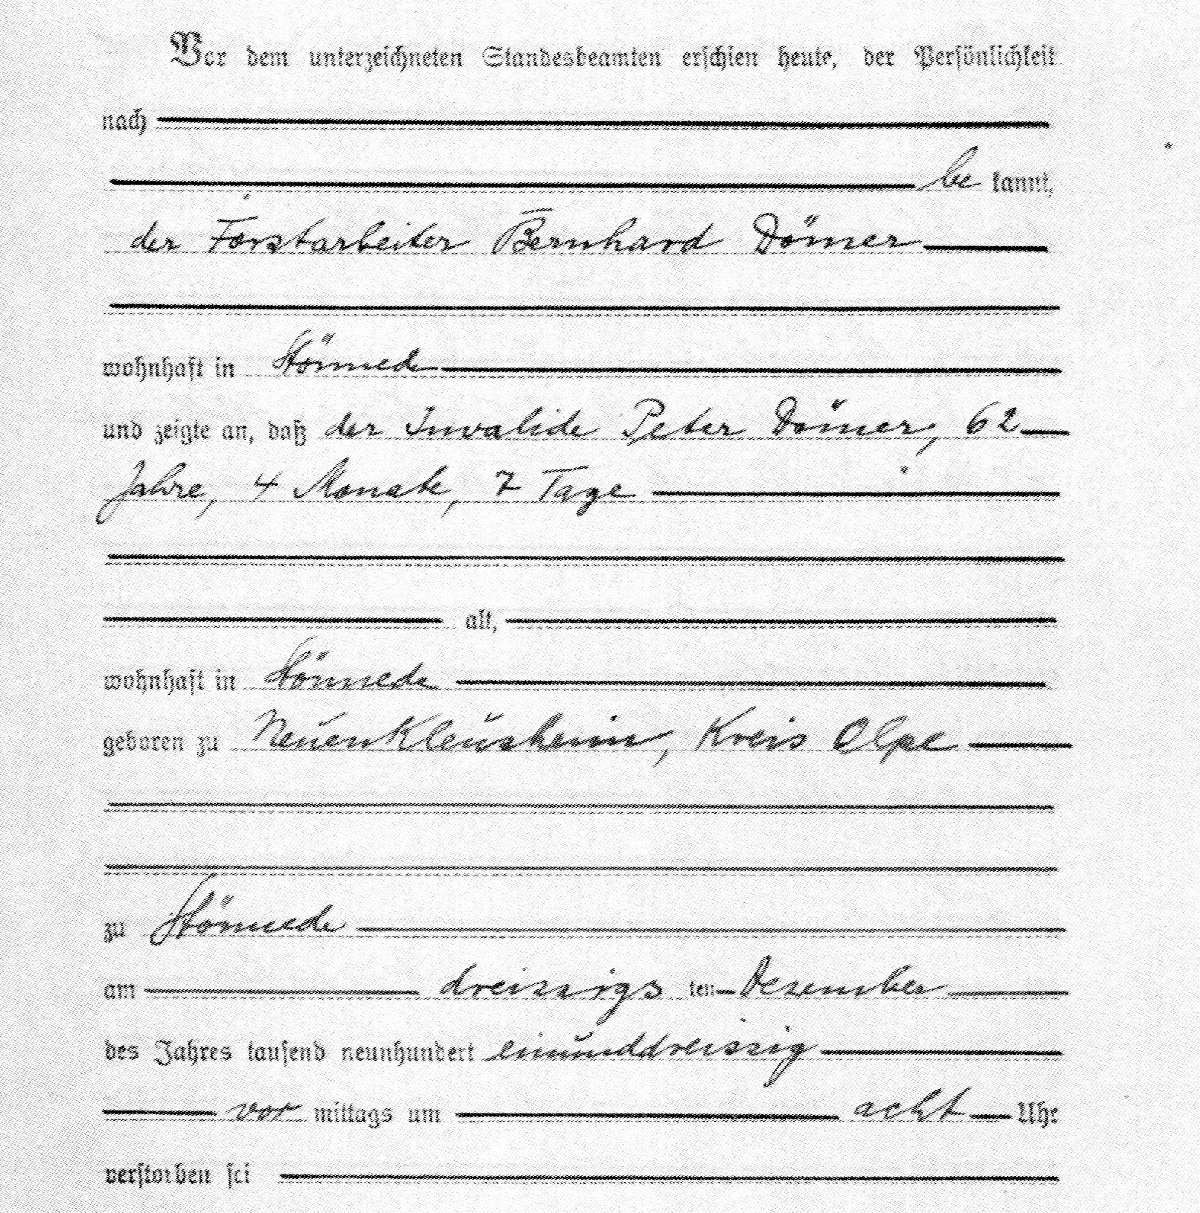 Vor dem unterzeichneten Standesbeamten erschien heute, der Persönlichkeit
nach
be kannt,
der Forstarbeiter Bernhard Dömer
wohnhaft in Störmede
und zeigte an, daß der Invalide Peter Dömer, 62
Jahre, 4 Monate, 7 Tage
alt,
wohnhaft in Störmede
geboren zu Neuenkleusheim, Kreis Olpe
zu Störmede
am dreissigs ten Dezember
des Jahres tausend neunhundert einunddreissig
vor mittags um acht Uhr
verstorben sei